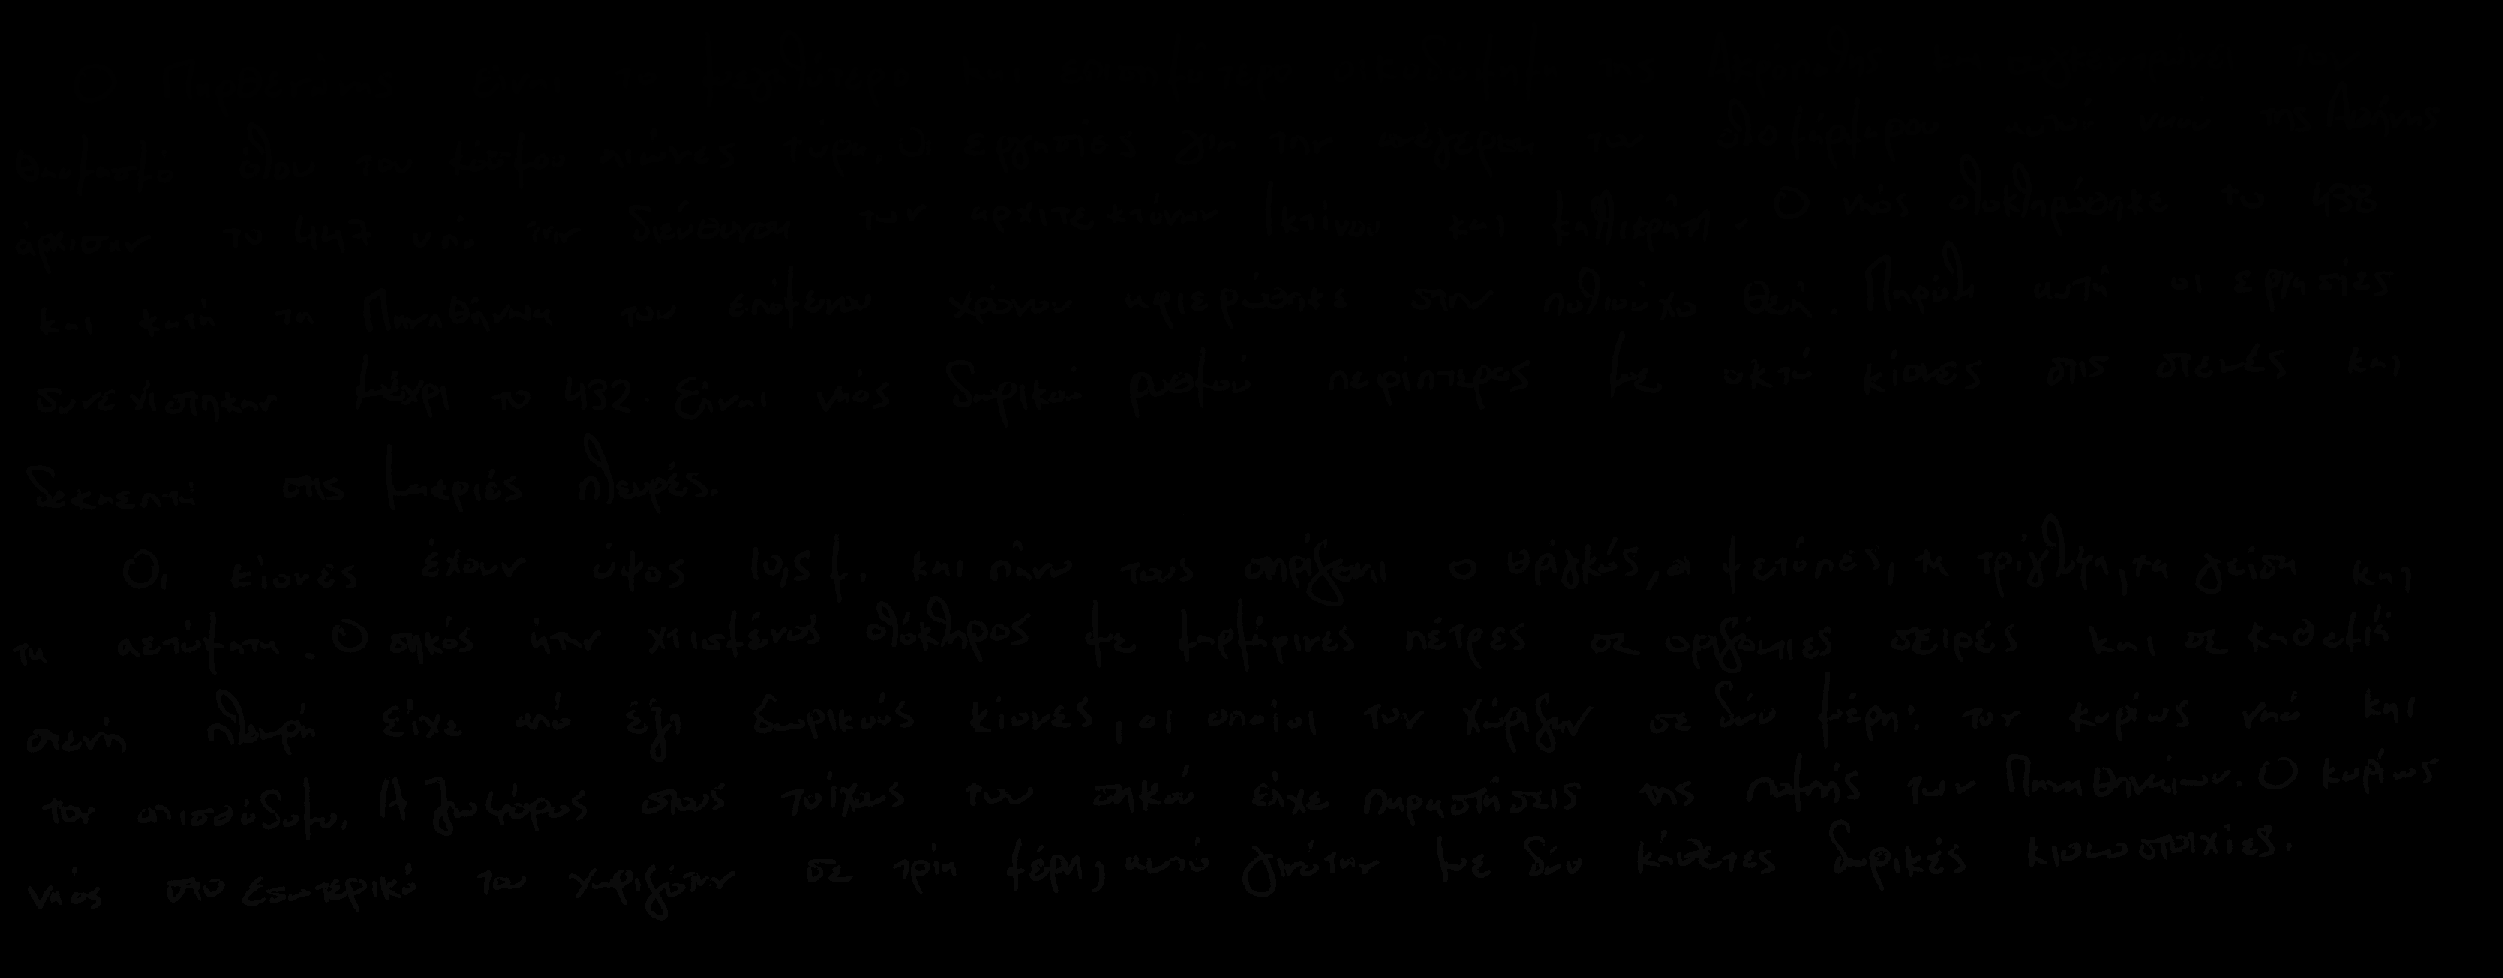 Ο Παρθενώνας
θαυμασμό όλου του κόσμου αιώνες τώρα. Οι εργασίες για την ανέγερση του πολυμάρμαρου αυτού ναού της Αθήνας
άρχισαν το 447 υπό την διεύθυνση των αρχιτεκτόνων Ικτίνου και Καλλικράτη. Ο ναός ολοκληρώθηκε το 438
και κατά τα Παναθήναια του επόμενου χρόνου αφιερώθηκε στην πολιούχο θεά. Παρόλα αυτά οι εργασίες
συνεχίστηκαν μέχρι το 432. Είναι ναός δωρικού ρυθμού περίπτερος με οκτώ κίονες στις στενές και
δεκαεπτά στις μακριές πλευρές.
Οι κίονες έχουν ύψος 10,5 μ. και πάνω τους στηρίζεται ο θριγκός, οι μετόπες, τα τρίγλυφα, τα γείσα και
τα αετώματα. Ο σηκός ήταν χτισμένος ολόκληρος με μαρμάρινες πέτρες σε οριζόντιες σειρές και σε καθεμιά
στενή πλευρά είχε από έξι δωρικούς κίονες, οι οποίοι τον χώριζαν σε δύο μέρη: τον κυρίως ναό και
τον οπισθόδομο. Η ζωφόρος στους τοίχους του σηκού είχε παραστάσεις της πομπής των Παναθηναίων. Ο κυρίως
ναός στο εσωτερικό του χωριζόταν σε τρία μέρη, αυτό γινόταν με δύο κάθετες δωρικές κιονοστοιχίες.